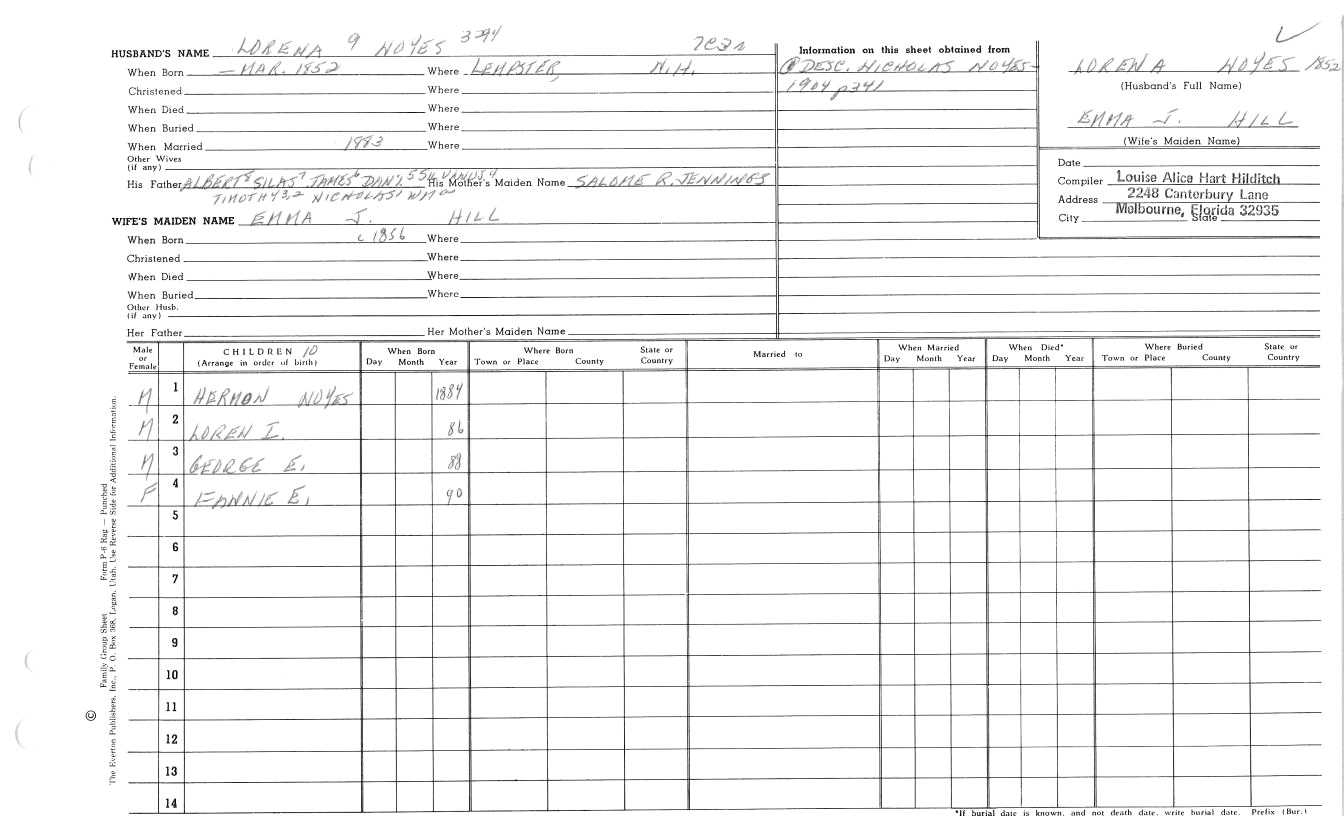 HUSBAND'S NAME LORENA 9 NOYES 3294
When Born — MAR. 1852 Where LEMPSTER, N.H.
Christened Where
When Died Where
When Buried Where
When Married 1883 Where
Other Wives
(if any)
His Father ALBERT8 SILAS7 JAMES6 DAN'L5 SYLVANUS4 His Mother's Maiden Name SALOME R. JENNINGS
TIMOTHY3,2 NICHOLAS1 WMa
WIFE'S MAIDEN NAME EMMA J. HILL
When Born c 1856 Where
Christened Where
When Died Where
When Buried Where
Other Husb.
(if any)
Her Father Her Mother's Maiden Name
Information on this sheet obtained from
DESC. NICHOLAS NOYES
1904 p341
LORENA NOYES 1852
(Husband's Full Name)
EMMA J. HILL
(Wife's Maiden Name)
Date
Compiler Louise Alice Hart Hilditch
Address 2248 Canterbury Lane
Melbourne, Florida 32935
City State
Male or Female CHILDREN 10 (Arrange in order of birth) When Born Day Month Year Where Born Town or Place County State or Country Married to When Married Day Month Year When Died* Day Month Year Where Buried Town or Place County State or Country
M 1 HERMON NOYES 1884
M 2 LOREN I. 86
M 3 GEORGE E. 88
F 4 FANNIE E. 90
5
6
7
8
9
10
11
12
13
14
*If burial date is known, and not death date, write burial date. Prefix (Bur.)
© Family Group Sheet Form P-6 Rag — Punched
The Everton Publishers, Inc., P. O. Box 368, Logan, Utah. Use Reverse Side for Additional Information.